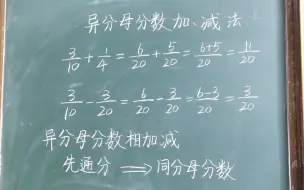 异分母分数加、减法
3/10 + 1/4 = 6/20 + 5/20 = 6+5/20 = 11/20
3/10 - 3/20 = 6/20 - 3/20 = 6-3/20 = 3/20
异分母分数相加减
先通分 ⟹ 同分母分数